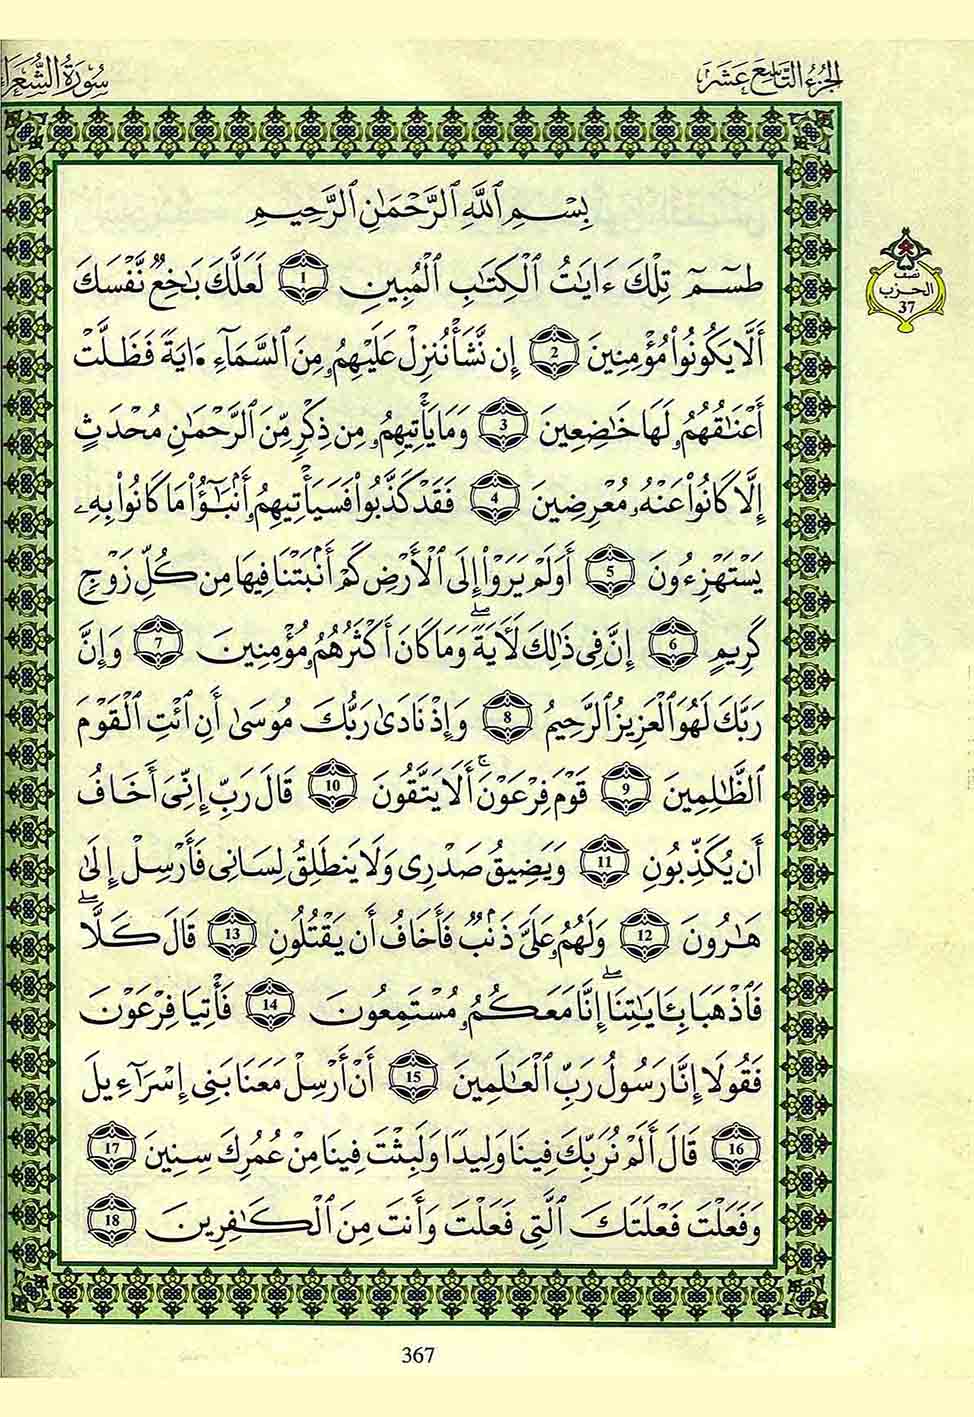 الجُزْءُ التَّاسِعَ عَشَرَ
سُورَةُ الشُّعَرَاءِ
بِسْمِ ٱللَّهِ ٱلرَّحْمَٰنِ ٱلرَّحِيمِ
طسٓمٓ تِلْكَ ءَايَٰتُ ٱلْكِتَٰبِ ٱلْمُبِينِ 1 لَعَلَّكَ بَٰخِعٌ نَّفْسَكَ
أَلَّا يَكُونُوا۟ مُؤْمِنِينَ 2 إِن نَّشَأْ نُنزِلْ عَلَيْهِمُۥ مِنَ ٱلسَّمَآءِ ءَايَةً فَظَلَّتْ
أَعْنَٰقُهُمُۥ لَهَا خَٰضِعِينَ 3 وَمَا يَأْتِيهِمُۥ مِن ذِكْرٍ مِّنَ ٱلرَّحْمَٰنِ مُحْدَثٍ
إِلَّا كَانُوا۟ عَنْهُۥ مُعْرِضِينَ 4 فَقَدْ كَذَّبُوا۟ فَسَيَأْتِيهِمُۥ أَنۢبَٰٓؤُا۟ مَا كَانُوا۟ بِهِۦ
يَسْتَهْزِءُونَ 5 أَوَلَمْ يَرَوْا۟ إِلَى ٱلْأَرْضِ كَمْ أَنۢبَتْنَا فِيهَا مِن كُلِّ زَوْجٍ
كَرِيمٍ 6 إِنَّ فِى ذَٰلِكَ لَأٓيَةً ۖ وَمَا كَانَ أَكْثَرُهُمُۥ مُؤْمِنِينَ 7 وَإِنَّ
رَبَّكَ لَهُوَ ٱلْعَزِيزُ ٱلرَّحِيمُ 8 وَإِذْ نَادَىٰ رَبُّكَ مُوسَىٰ أَنِ ٱئْتِ ٱلْقَوْمَ
ٱلظَّٰلِمِينَ 9 قَوْمَ فِرْعَوْنَ ۚ أَلَا يَتَّقُونَ 10 قَالَ رَبِّ إِنِّىَ أَخَافُ
أَن يُكَذِّبُونِ 11 وَيَضِيقُ صَدْرِى وَلَا يَنطَلِقُ لِسَانِى فَأَرْسِلْ إِلَىٰ
هَٰرُونَ 12 وَلَهُمُۥ عَلَىَّ ذَنۢبٌ فَأَخَافُ أَن يَقْتُلُونِ 13 قَالَ كَلَّا ۖ
فَٱذْهَبَا بِـَٔايَٰتِنَا ۖ إِنَّا مَعَكُمُۥ مُسْتَمِعُونَ 14 فَأْتِيَا فِرْعَوْنَ
فَقُولَا إِنَّا رَسُولُ رَبِّ ٱلْعَٰلَمِينَ 15 أَنْ أَرْسِلْ مَعَنَا بَنِى إِسْرَآءِيلَ
16 قَالَ أَلَمْ نُرَبِّكَ فِينَا وَلِيدًا وَلَبِثْتَ فِينَا مِنْ عُمُرِكَ سِنِينَ 17
وَفَعَلْتَ فَعْلَتَكَ ٱلَّتِى فَعَلْتَ وَأَنتَ مِنَ ٱلْكَٰفِرِينَ 18
نصف
الحزب
37
367